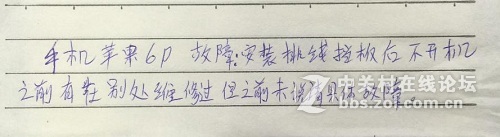 手机苹果6P 故障:安装排线挡板后不开机
之前有在别处维修过 但之前未具体故障
中关村在线论坛